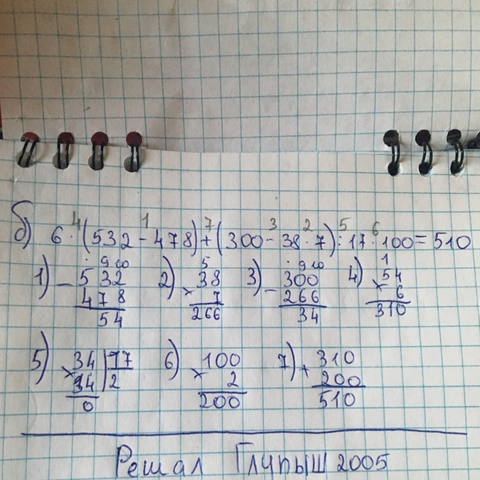 б) 6 · (532 - 478) + (300 - 38 · 7) : 17 · 100 = 510
4 1 7 3 2 5 6
1) - 532 478 54
2) × 38 7 266
3) - 300 266 34
4) × 54 6 310
5) 34 | 17 34 2 0
6) × 100 2 200
7) + 310 200 510
Решал Глупыш 2005